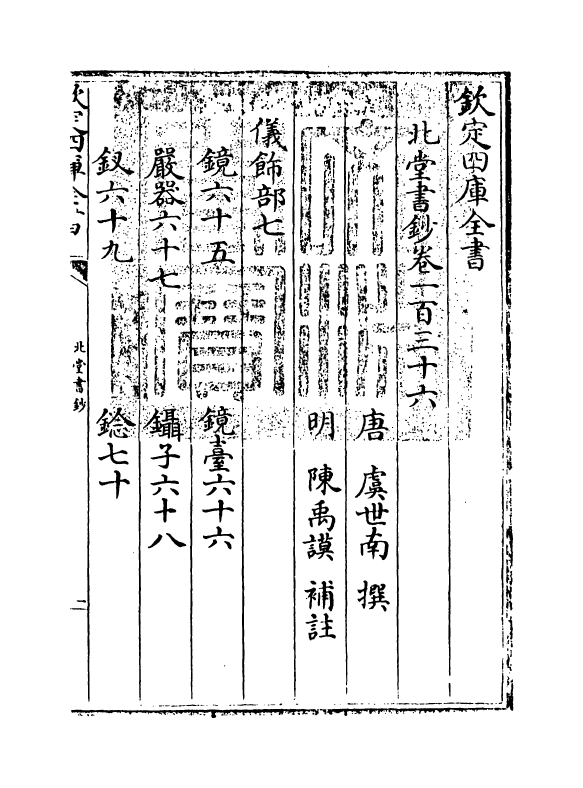 欽定四庫全書
北堂書鈔卷一百三十六
唐 虞世南 撰
明 陳禹謨 補註
儀飾部七
鏡六十五 鏡臺六十六
嚴器六十七 鑷子六十八
釵六十九 鎗七十
北堂書鈔